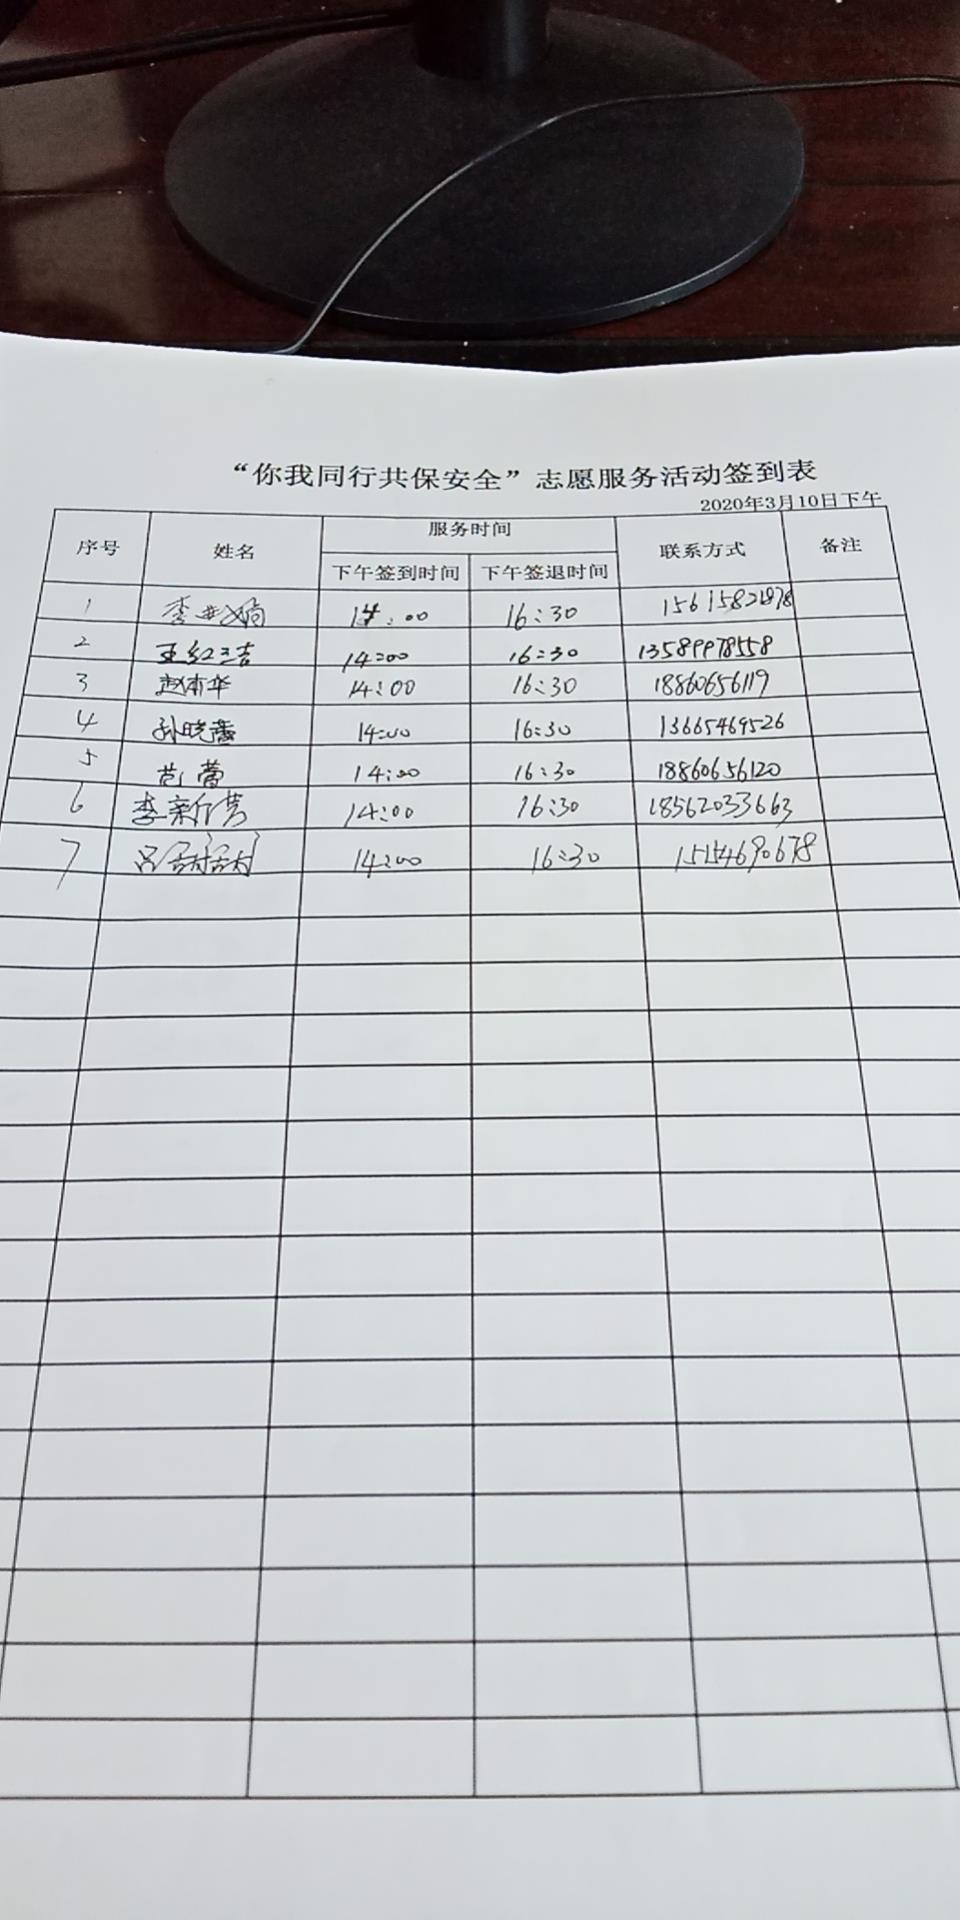 “你我同行共保安全”志愿服务活动签到表
2020年3月10日下午
序号 姓名 服务时间 联系方式 备注
下午签到时间 下午签退时间
1 14:00 16:30
2 14:00 16:30 13589978558
3 赵本华 14:00 16:30 18860656119
4 孙晓燕 14:00 16:30 13665469526
5 范蕾 14:00 16:30 18860656120
6 李新芳 14:00 16:30 18562033663
7 吕 14:00 16:30 15154690678